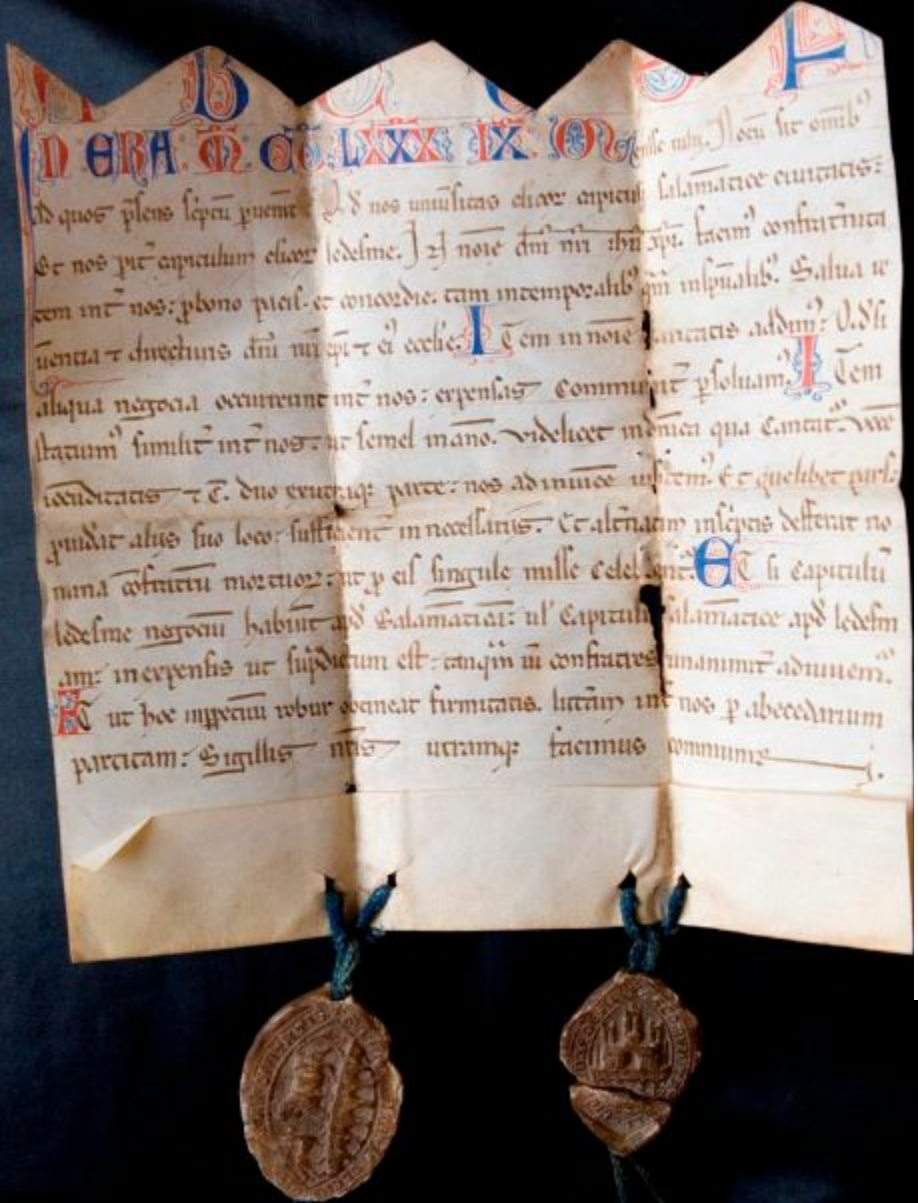 A B C D E F
IN ERA. M. CC. LXXX IX. Mense iulii. Notu sit omib
ad quos psens scptu puenit Qd nos uniusitas clicor capituli salamatice ciuitatis:
Et nos pit capiculum clicor ledesme. In noie dni nri ihu xpi. facim confratnita
tem int nos: p bono pacis. et concordie: tam in temporalib qm in spualib. Salua re
uentia ⁊ directuris dni nri epi ⁊ ei ecclie. ITem in noie caritatis addim: Qd si
aliqua negocia occurrerint int nos: expensas communit psoluam. ITem
statuim similit int nos: ut semel in ano. videlicet in dnica qua Cantat. voce
iocunditatis ⁊ c. duo ex utraque parte: nos ad inuice uisitem. Et quelibet pars:
puidat aliis suo loco: sufficient in necessariis. Et altnatim in scptis defferat no
mina cofratru mortuor: ut p eis singule misse celebrent. ET si Capitulu
ledesme negociu habuit apd Salamatica: ul Capitulu salamatice apd ledesm
am: in expensis ut supdictum est: tanqm ui confratres unanimit adiuuem.
ET ut hoc inppetuu robur obtineat firmitatis. littam int nos p abecedarium
partitam: Sigillis nris utramq facimus communiri.